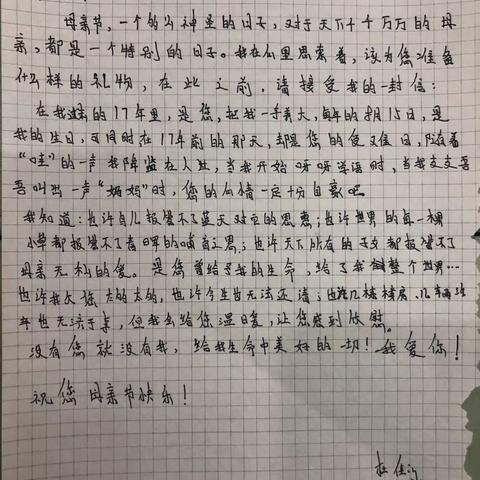 母亲节，一个多么神圣的日子，对于天下千千万万的母
亲，都是一个特别的日子。我在心里思索着，该为您准备
什么样的礼物，在此之前，请接受我的一封信：
在我过去的17年里，是您，把我一手养大，每年的 月15日，是
我的生日，可同时在17年前的那天，却是您的受难日，随着
“哇”的一声我降临在人世，当我开始呀呀学语时，当我支支吾
吾叫出一声“妈妈”时，您的心情一定十分自豪吧。
我知道：也许鸟儿报答不了蓝天对它的恩惠；也许世界的每一棵
小草都报答不了春日里的哺育之恩；也许天下所有的子女都报答不了
母亲无私的爱。是您曾给予我的生命，给了我整个世界…
也许我欠您太多太多，也许今生也无法还清；也许
也无济于事，但我会给您温暖，让您感到欣慰。
没有您就没有我，给我生命中美好的一切！我爱你！
祝您母亲节快乐！
杜佳